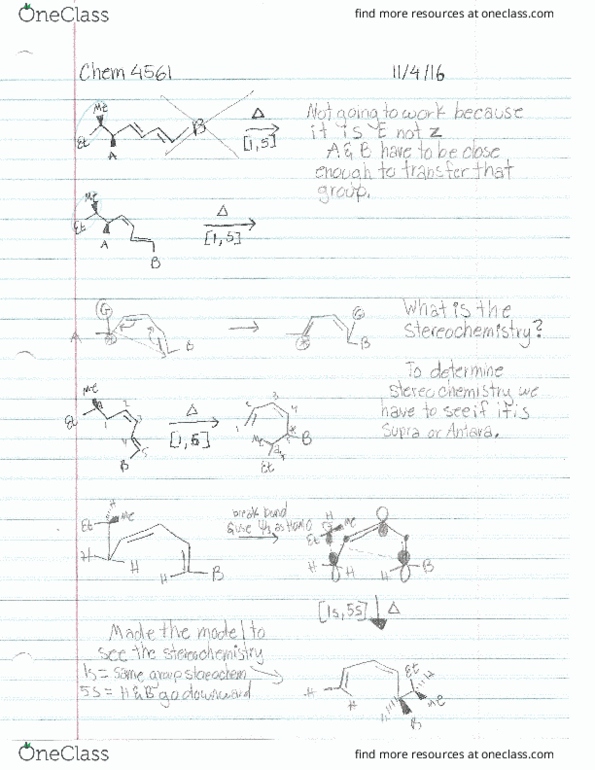 OneClass
find more resources at oneclass.com
Chem 4561
11/4/16
Me
Et
A
B
Δ
[1,5]
Not going to work because
it is E not Z
A & B have to be close
enough to transfer that
group.
Me
Et
A
B
Δ
[1,5]
A
G
B
G
B
What is the
stereochemistry?
Me
Et
1
2
3
4
5
B
Δ
[1,5]
1
2
3
4
5
Me
Et
B
To determine
stereochemistry we
have to see if it is
Supra or Antara.
H
Et
Me
H
H
H
B
break bond
& use Ψ3 as HOMO
H
Et
Me
H
H
H
B
[1s,5s]
Δ
Made the model to
see the stereochemistry
1s = same group stereochem
5s = H & B go downward
H
H
Et
H
Me
H
B
OneClass
find more resources at oneclass.com